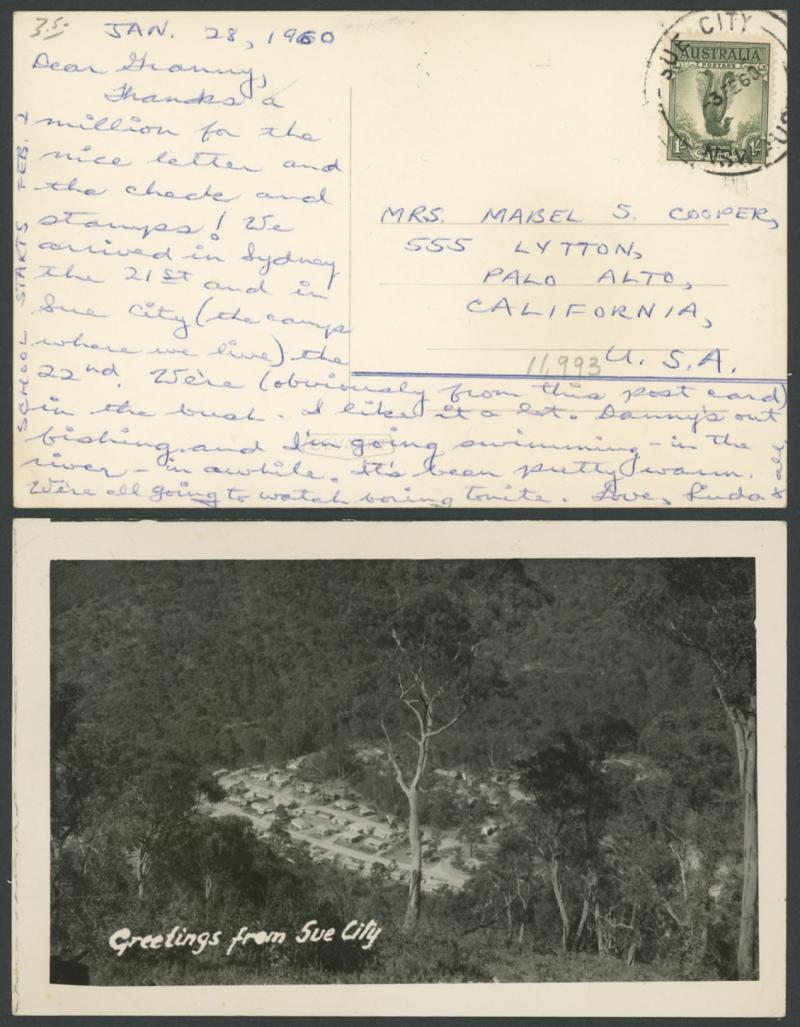 3.50
JAN. 28, 1960
Dear Granny,
Thanks a
million for the
nice letter and
the check and
stamps! We
arrived in Sydney
the 21ST and in
Sue City (the camp
where we live) the
22nd. We're (obviously from this post card)
in the bush. I like it a lot. Danny's out
fishing and I'm going swimming - in the
river - in awhile. It's been pretty warm.
We're all going to watch boring tonite. Love, Linda & all
SCHOOL STARTS FEB. 2
SUE CITY
3 FE 60
N.S.W. AUST
AUSTRALIA
POSTAGE
1/- 1/-
MRS. MABEL S. COOPER,
555 LYTTON,
PALO ALTO,
CALIFORNIA,
U.S.A.
11,993
Greetings from Sue City